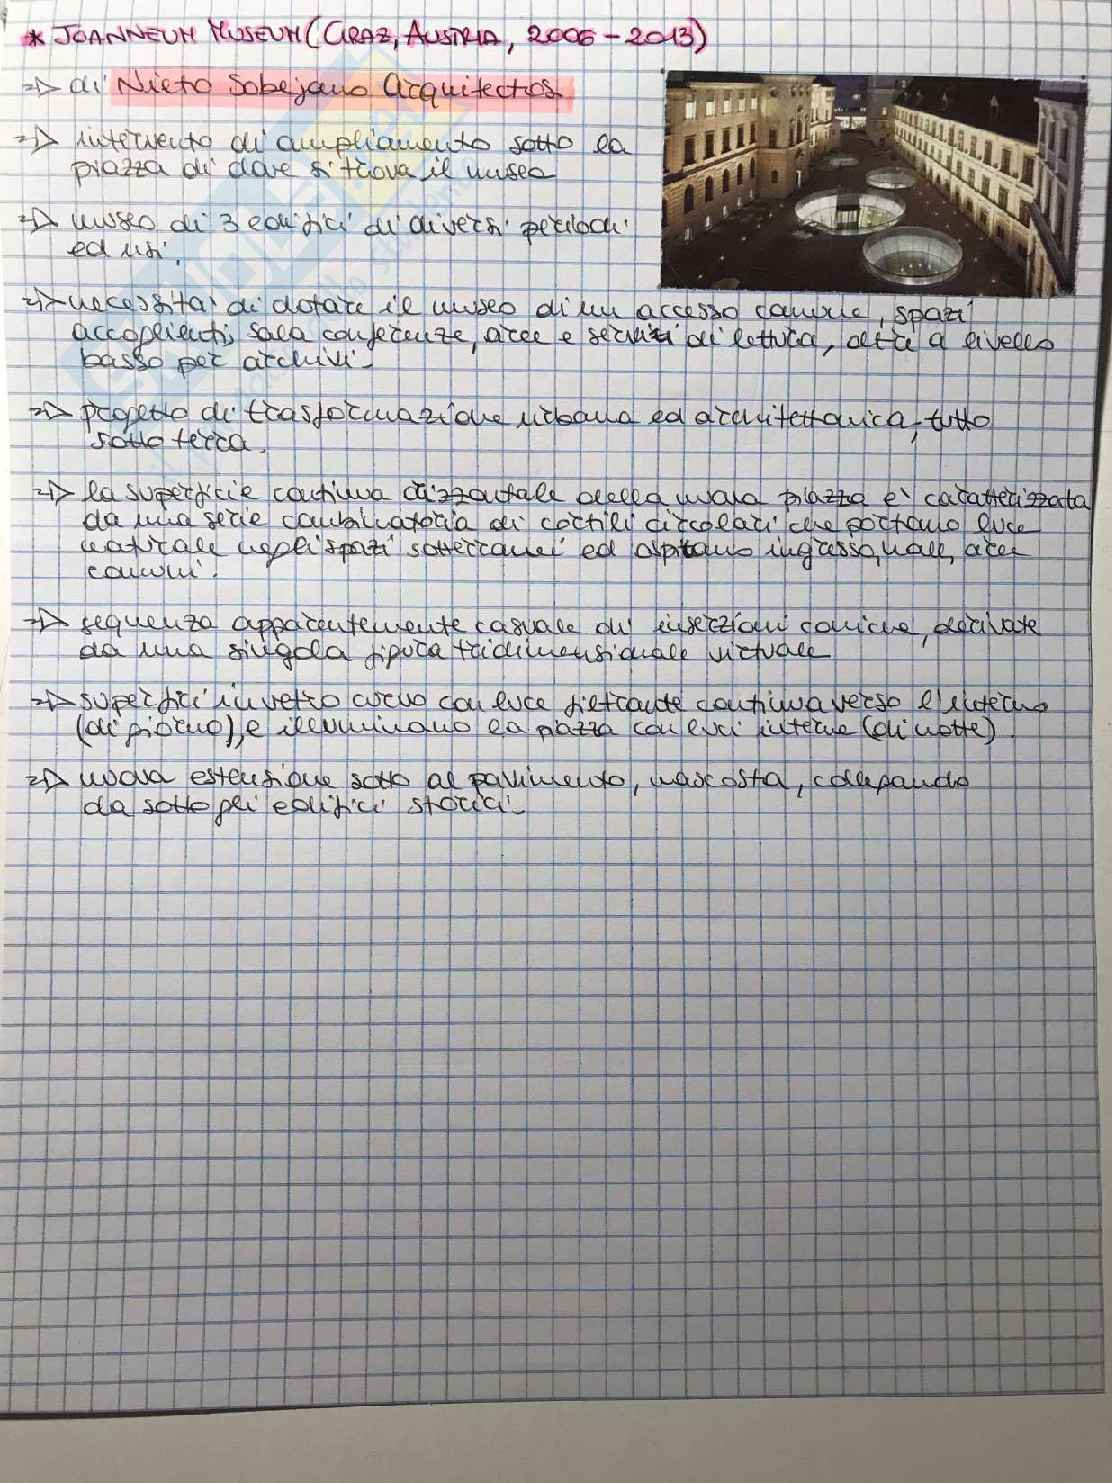 * JOANNEUM MUSEUM (GRAZ, AUSTRIA, 2006-2013)
=> di Nieto Sobejano Arquitectos
=> intervento di ampliamento sotto la
piazza di dove si trova il museo
=> museo di 3 edifici di diversi periodi
ed usi.
=> necessita' di dotare il museo di un accesso comune, spazi
accoglienti, sala conferenze, aree e servizi di lettura, oltre a livello
basso per archivi.
=> progetto di trasformazione urbana ed architettonica, tutto
sotto terra.
=> la superficie continua orizzontale della nuova piazza e' caratterizzata
da una serie combinatoria di cortili circolari che portano luce
naturale negli spazi sotterranei ed ospitano ingresso, hall, aree
comuni.
=> sequenza apparentemente casuale di inserzioni coniche, derivate
da una singola figura tridimensionale virtuale
=> superfici in vetro curvo con luce filtrante continua verso l'interno
(di giorno), e illuminano la piazza con luci interne (di notte).
=> nuova estensione sotto al pavimento, nascosta, collegando
da sotto gli edifici storici.